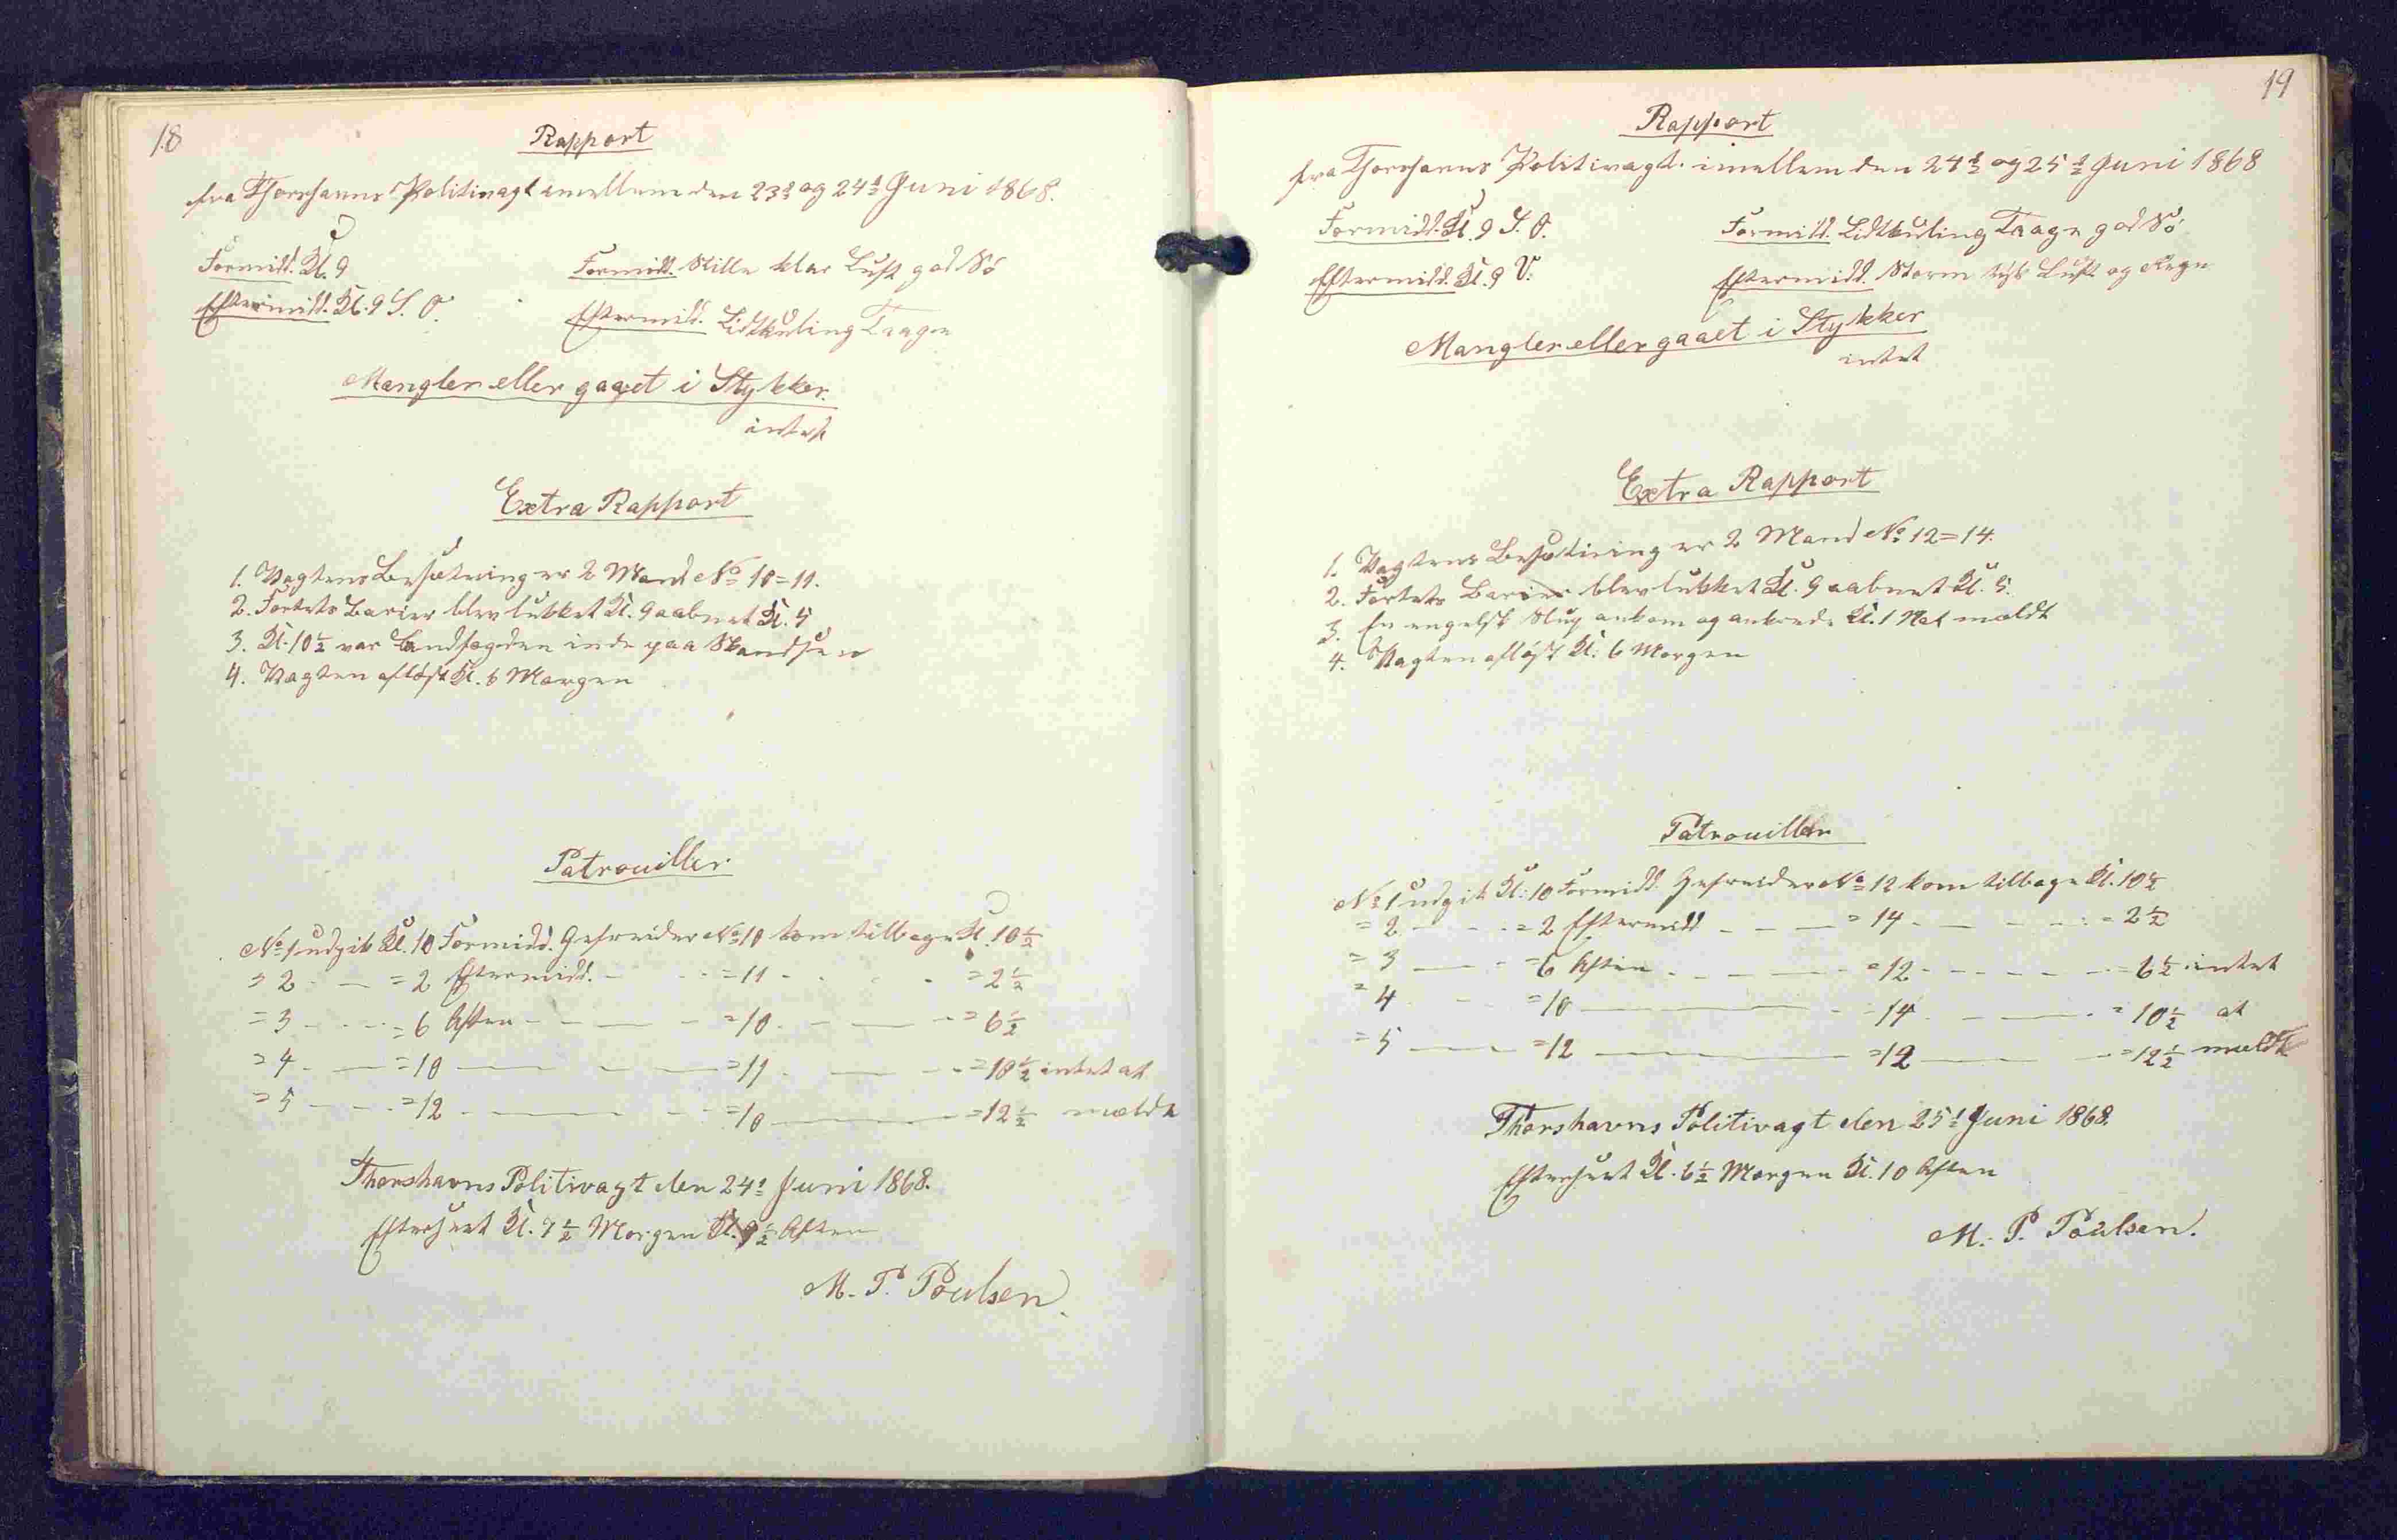 18
Rapport
fra Thorshavns Politivagt imellem den 23de og 24de Juni 1868.
Formidd. Kl. 9
Formidd. Stille klar Luft god Sö
Eftermidd. Kl. 9 S. O.
Eftermidd. Lidtkuling Taage
Mangler eller gaaet i Stykker.
intet
Extra Rapport
1. Vagtens Besætning er 2 Mand No 10=11.
2. Fortets Barier blev lukket Kl. 9 aabnet Kl. 5
3. Kl. 10½ var Landfogden inde paa Skandsen
4. Vagten aflöst Kl. 6 Morgen
Patrouiller.
No 1 udgik Kl. 10 Formidd. Gefreider No 10 kom tilbage Kl. 10½
= 2 - — = 2 Eftermidd. - - - = 11 - - - = 2½
= 3 - - - = 6 Aften - — — - = 10 - — — - = 6½
= 4 - — = 10 — — — = 11 - — — - = 10½ intet at
= 5 — - - = 12 - — — - - = 10 — — = 12½ melde
Thorshavns Politivagt den 24de Juni 1868.
Efterseet Kl. 7½ Morgen Kl. 9½ Aften
M. P. Poulsen.
19
Rapport
fra Thorshavns Politivagt imellem den 24de og 25de Juni 1868
Formidd. Kl. 9 S. O.
Formidd. Lidtkuling Taage god Sö
Eftermidd. Kl. 9 V.
Eftermidd. Storm tyk Luft og Regn
Mangler eller gaaet i Stykker
intet
Extra Rapport
1. Vagtens Besætning er 2 Mand No 12=14.
2. Fortets Barier blev lukket Kl. 9 aabnet Kl. 5.
3. En engelsk Slup ankom og ankrede Kl. 1 Nat meldt
4. Vagten aflöst Kl. 6 Morgen
Patrouiller
No 1 udgik Kl. 10 Formidd. Gefreider No 12 kom tilbage Kl. 10½
= 2 - - - = 2 Eftermidd - - — = 14 - — - - = 2½
= 3 — - = 6 Aften - - — - = 12 - - - — - = 6½ intet
= 4 - - = 10 — — - = 14 - — — - = 10½ at
= 5 — — = 12 — — = 12 — — = 12½ melde
Thorshavns Politivagt den 25de Juni 1868.
Efterseet Kl. 6½ Morgen Kl. 10 Aften
M. P. Poulsen.